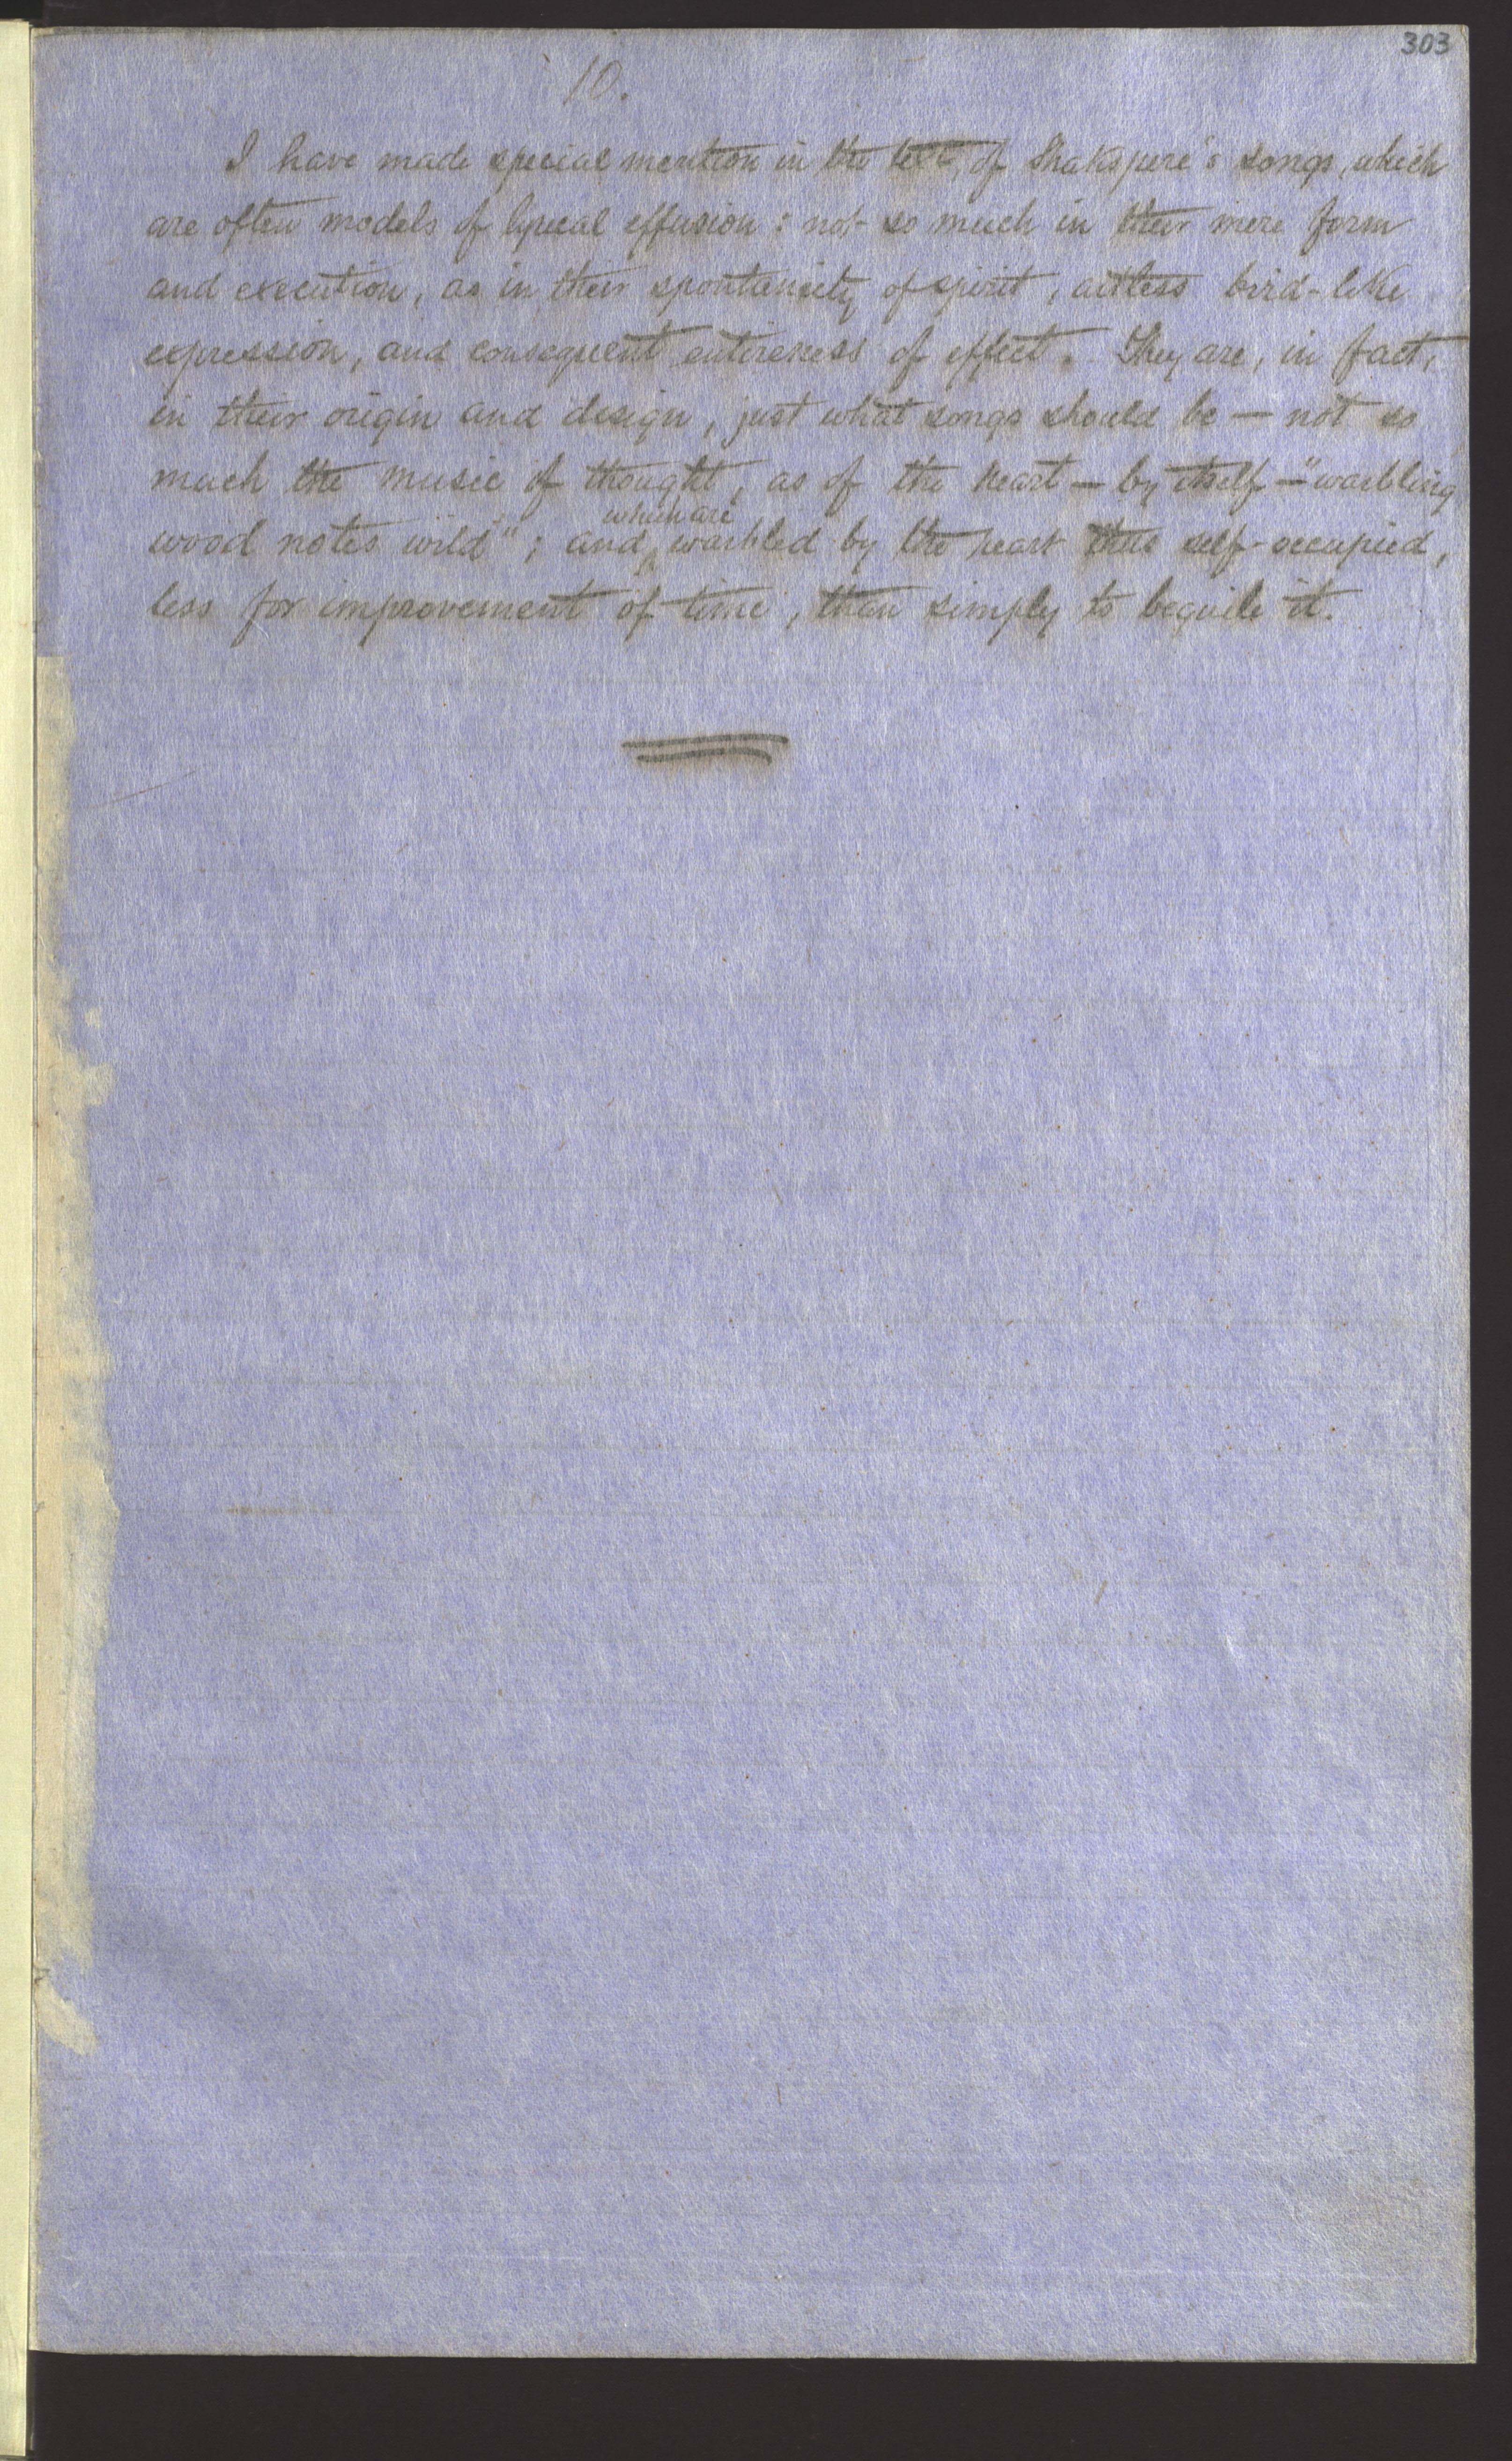 303
10.
I have made special mention in the text, of Shakspere's songs, which
are often models of lyrical effusion: not so much in their mere form
and execution, as in their spontaneity of spirit, artless bird-like
expression, and consequent entireness of effect. They are, in fact,
in their origin and design, just what songs should be — not so
much the music of thought, as of the heart — by itself — "warbling
which are
wood notes wild"; and warbled by the heart thus self-occupied,
less for improvement of time, than simply to beguile it.